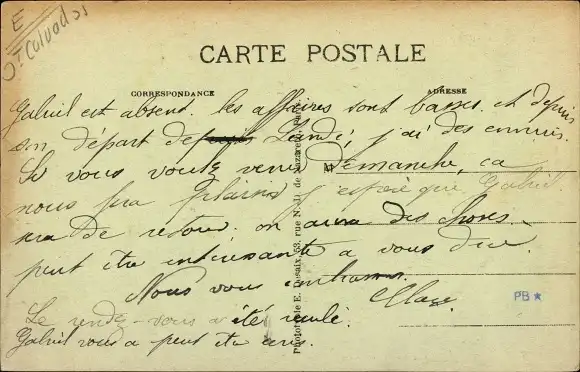 E
Calvados
CARTE POSTALE
CORRESPONDANCE
ADRESSE
Gabriel est absent. les affaires sont basses. et depuis
son départ depuis Lundi, j'ai des ennuis.
Si vous voulez venir Demanche, ça
nous fera plaisir j'espère que Gabriel
sera de retour, on aura des choses
peut être interessante a vous dire.
Nous vous embrassons.
Le rendez-vous a été reculé.
Gabriel vous a peut être
Phototypie E. Desaix, 53, rue N.-D. de Nazareth,
M
PB ★